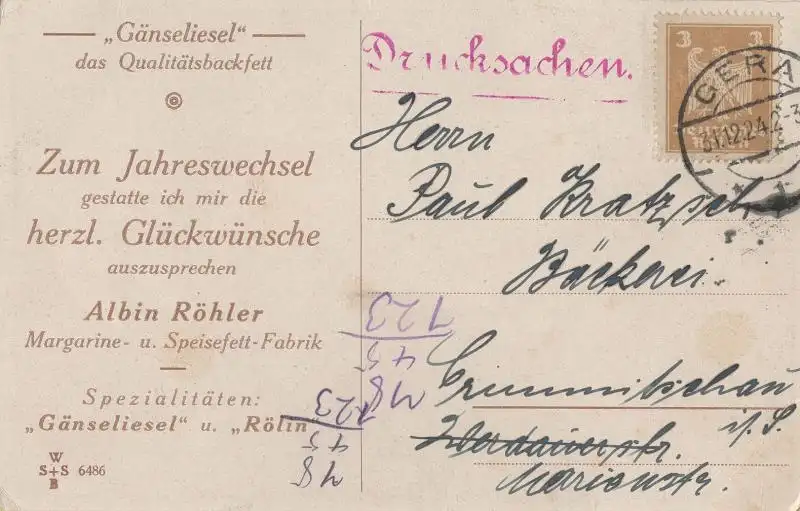 „Gänseliesel"
das Qualitätsbackfett
Zum Jahreswechsel
gestatte ich mir die
herzl. Glückwünsche
auszusprechen
Albin Röhler
Margarine- u. Speisefett-Fabrik
Spezialitäten:
„Gänseliesel" u. „Rölin"
W
S+S 6486
B
Drucksachen.
3 3
GERA
31.12.24.2-3
Herrn
Paul Kratzsch
Bäckerei.
Crimmitschau
i/S.
Werdauerstr.
Marienstr.
123
45
78
123
45
78